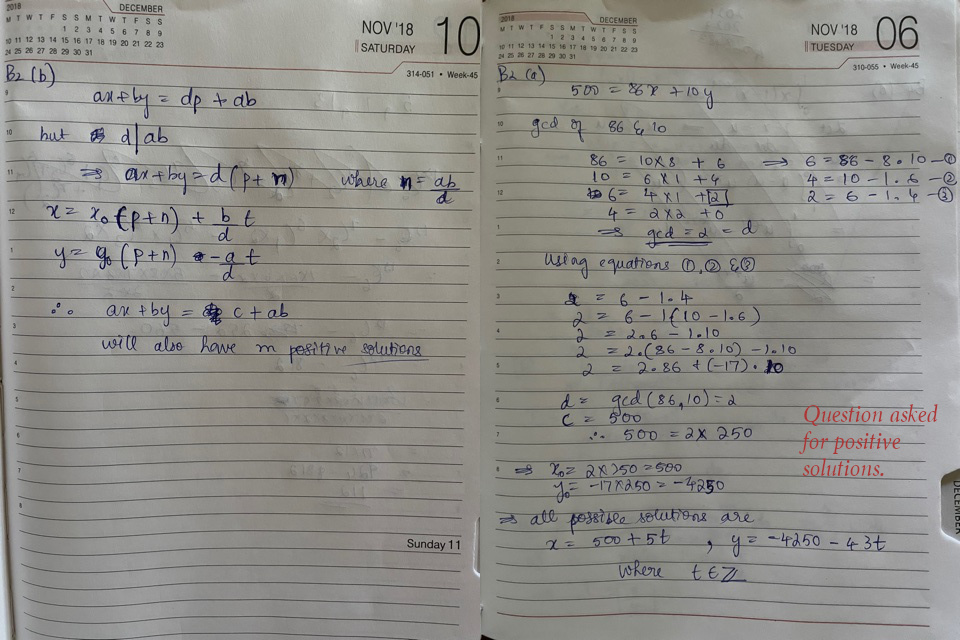 2018 DECEMBER
M T W T F S S M T W T F S S
1 2 3 4 5 6 7 8 9
10 11 12 13 14 15 16 17 18 19 20 21 22 23
24 25 26 27 28 29 30 31
NOV '18
SATURDAY
10
314-051 • Week-45
B2 (b)
ax+by = dp + ab
but d|ab
⇒ ax+by = d(p+n) where n = ab/d
x = x₀(p+n) + b/d t
y = y₀(p+n) - a/d t
∴ ax+by = c + ab
will also have m positive solutions
Sunday 11
2018 DECEMBER
M T W T F S S M T W T F S S
1 2 3 4 5 6 7 8 9
10 11 12 13 14 15 16 17 18 19 20 21 22 23
24 25 26 27 28 29 30 31
NOV '18
TUESDAY
06
310-055 • Week-45
B2 (a)
500 = 86x + 10y
gcd of 86 & 10
86 = 10×8 + 6 ⇒ 6 = 86 - 8.10 -①
10 = 6×1 + 4 4 = 10 - 1.6 -②
6 = 4×1 + 2 2 = 6 - 1.4 -③
4 = 2×2 + 0
⇒ gcd = 2 = d
Using equations ①, ② & ③
= 6 - 1.4
2 = 6 - 1(10 - 1.6)
2 = 2.6 - 1.10
2 = 2.(86 - 8.10) - 1.10
2 = 2.86 + (-17).10
d = gcd(86,10) = 2
c = 500
∴ 500 = 2× 250
Question asked
for positive
solutions.
⇒ x₀ = 2×250 = 500
y₀ = -17×250 = -4250
⇒ all possible solutions are
x = 500 + 5t , y = -4250 - 43t
where t ∈ ℤ
DECEMBER